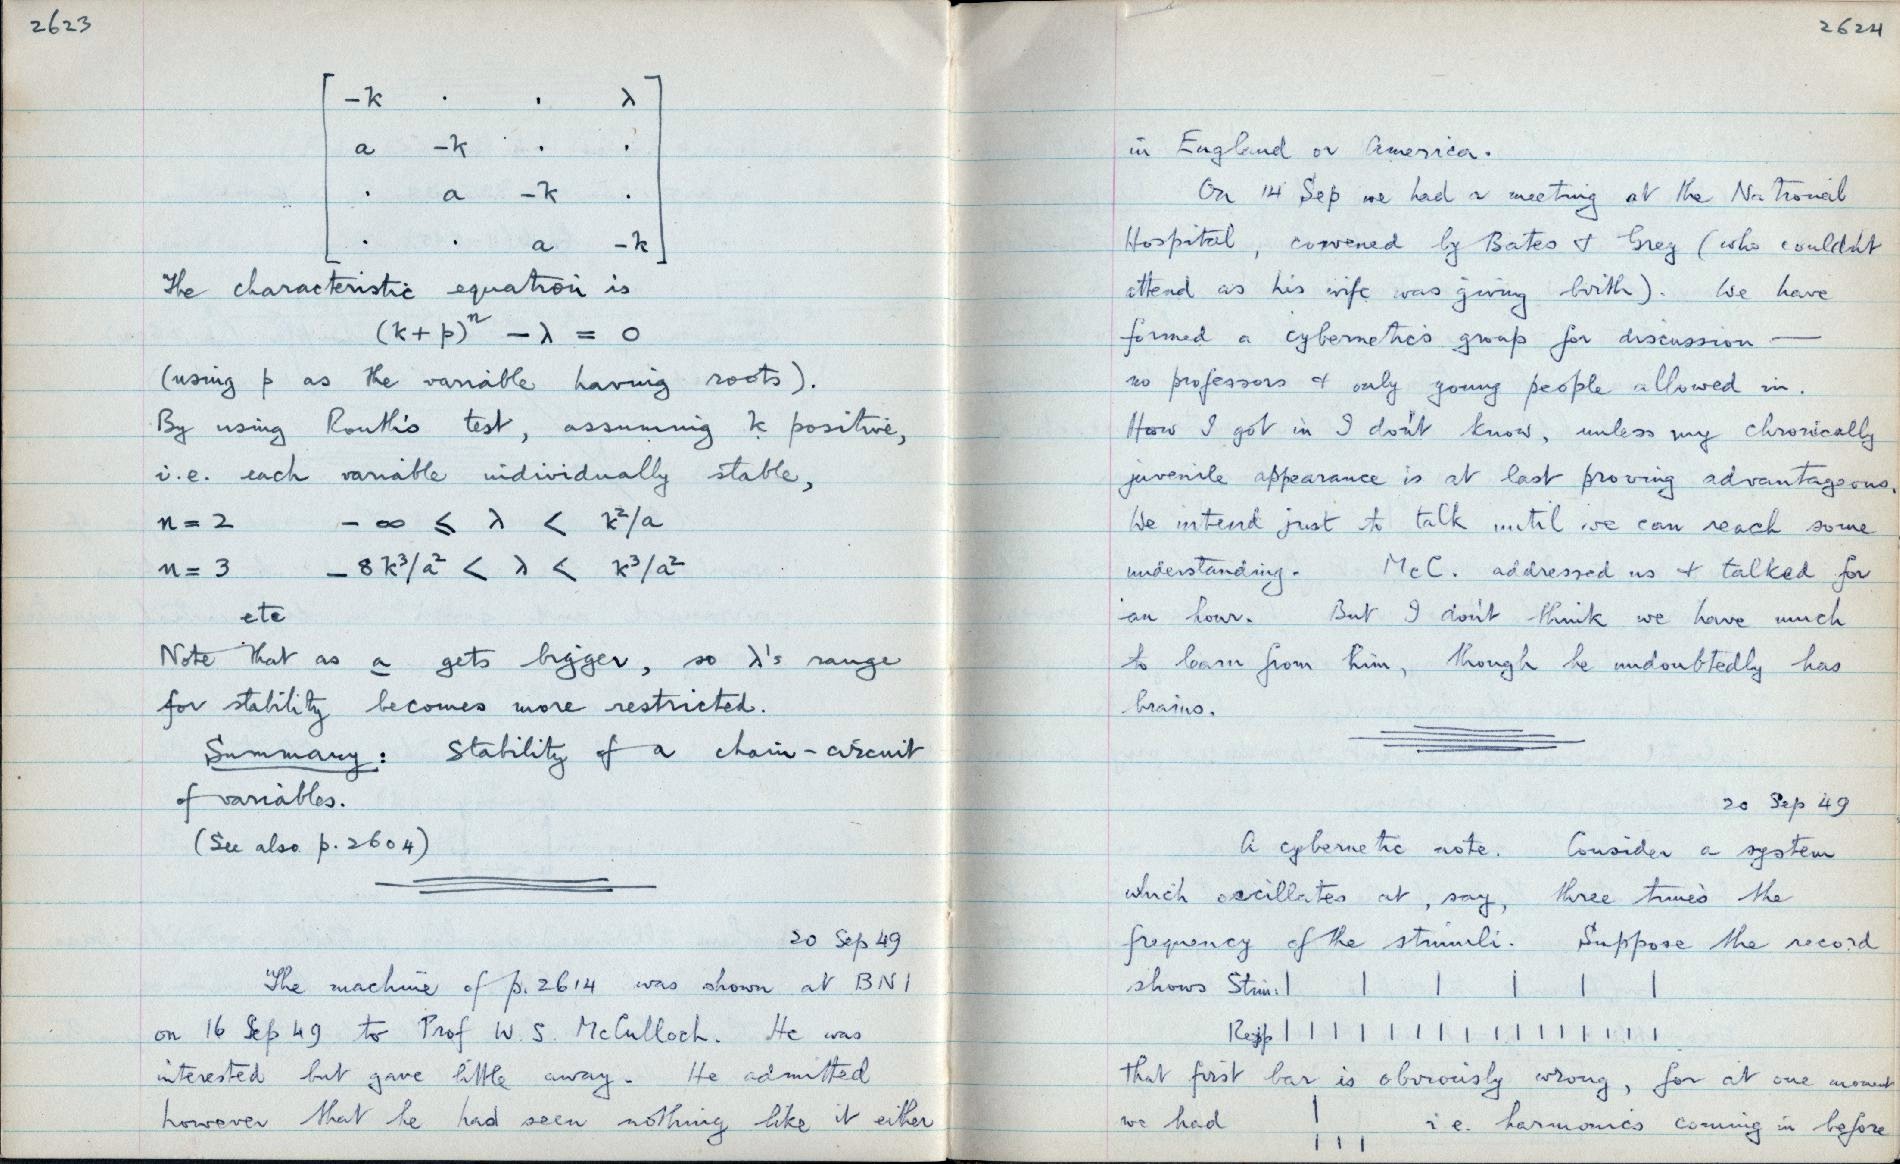 2623
[ -k · · λ
a -k · ·
· a -k ·
· · a -k ]
The characteristic equation is
(k+p)ⁿ - λ = 0
(using p as the variable having roots).
By using Routh's test, assuming k positive,
i.e. each variable individually stable,
n = 2 - ∞ ≤ λ < k²/a
n = 3 - 8k³/a² < λ < k³/a²
etc
Note that as a gets bigger, so λ's range
for stability becomes more restricted.
Summary: Stability of a chain-circuit
of variables.
(See also p.2604)
20 Sep 49
The machine of p.2614 was shown at BNI
on 16 Sep 49 to Prof W. S. McCulloch. He was
interested but gave little away. He admitted
however that he had seen nothing like it either
2624
in England or America.
On 14 Sep we had a meeting at the National
Hospital, convened by Bates & Grey (who couldn't
attend as his wife was giving birth). We have
formed a cybernetics group for discussion —
no professors & only young people allowed in.
How I got in I don't know, unless my chronically
juvenile appearance is at last proving advantageous.
We intend just to talk until we can reach some
understanding. McC. addressed us & talked for
an hour. But I don't think we have much
to learn from him, though he undoubtedly has
brains.
20 Sep 49
A cybernetic note. Consider a system
which oscillates at, say, three times the
frequency of the stimuli. Suppose the record
shows Stim. | | | | | |
Resp | | | | | | | | | | | | | | | |
that first bar is obviously wrong, for at one moment
we had | i.e. harmonics coming in before
| | |